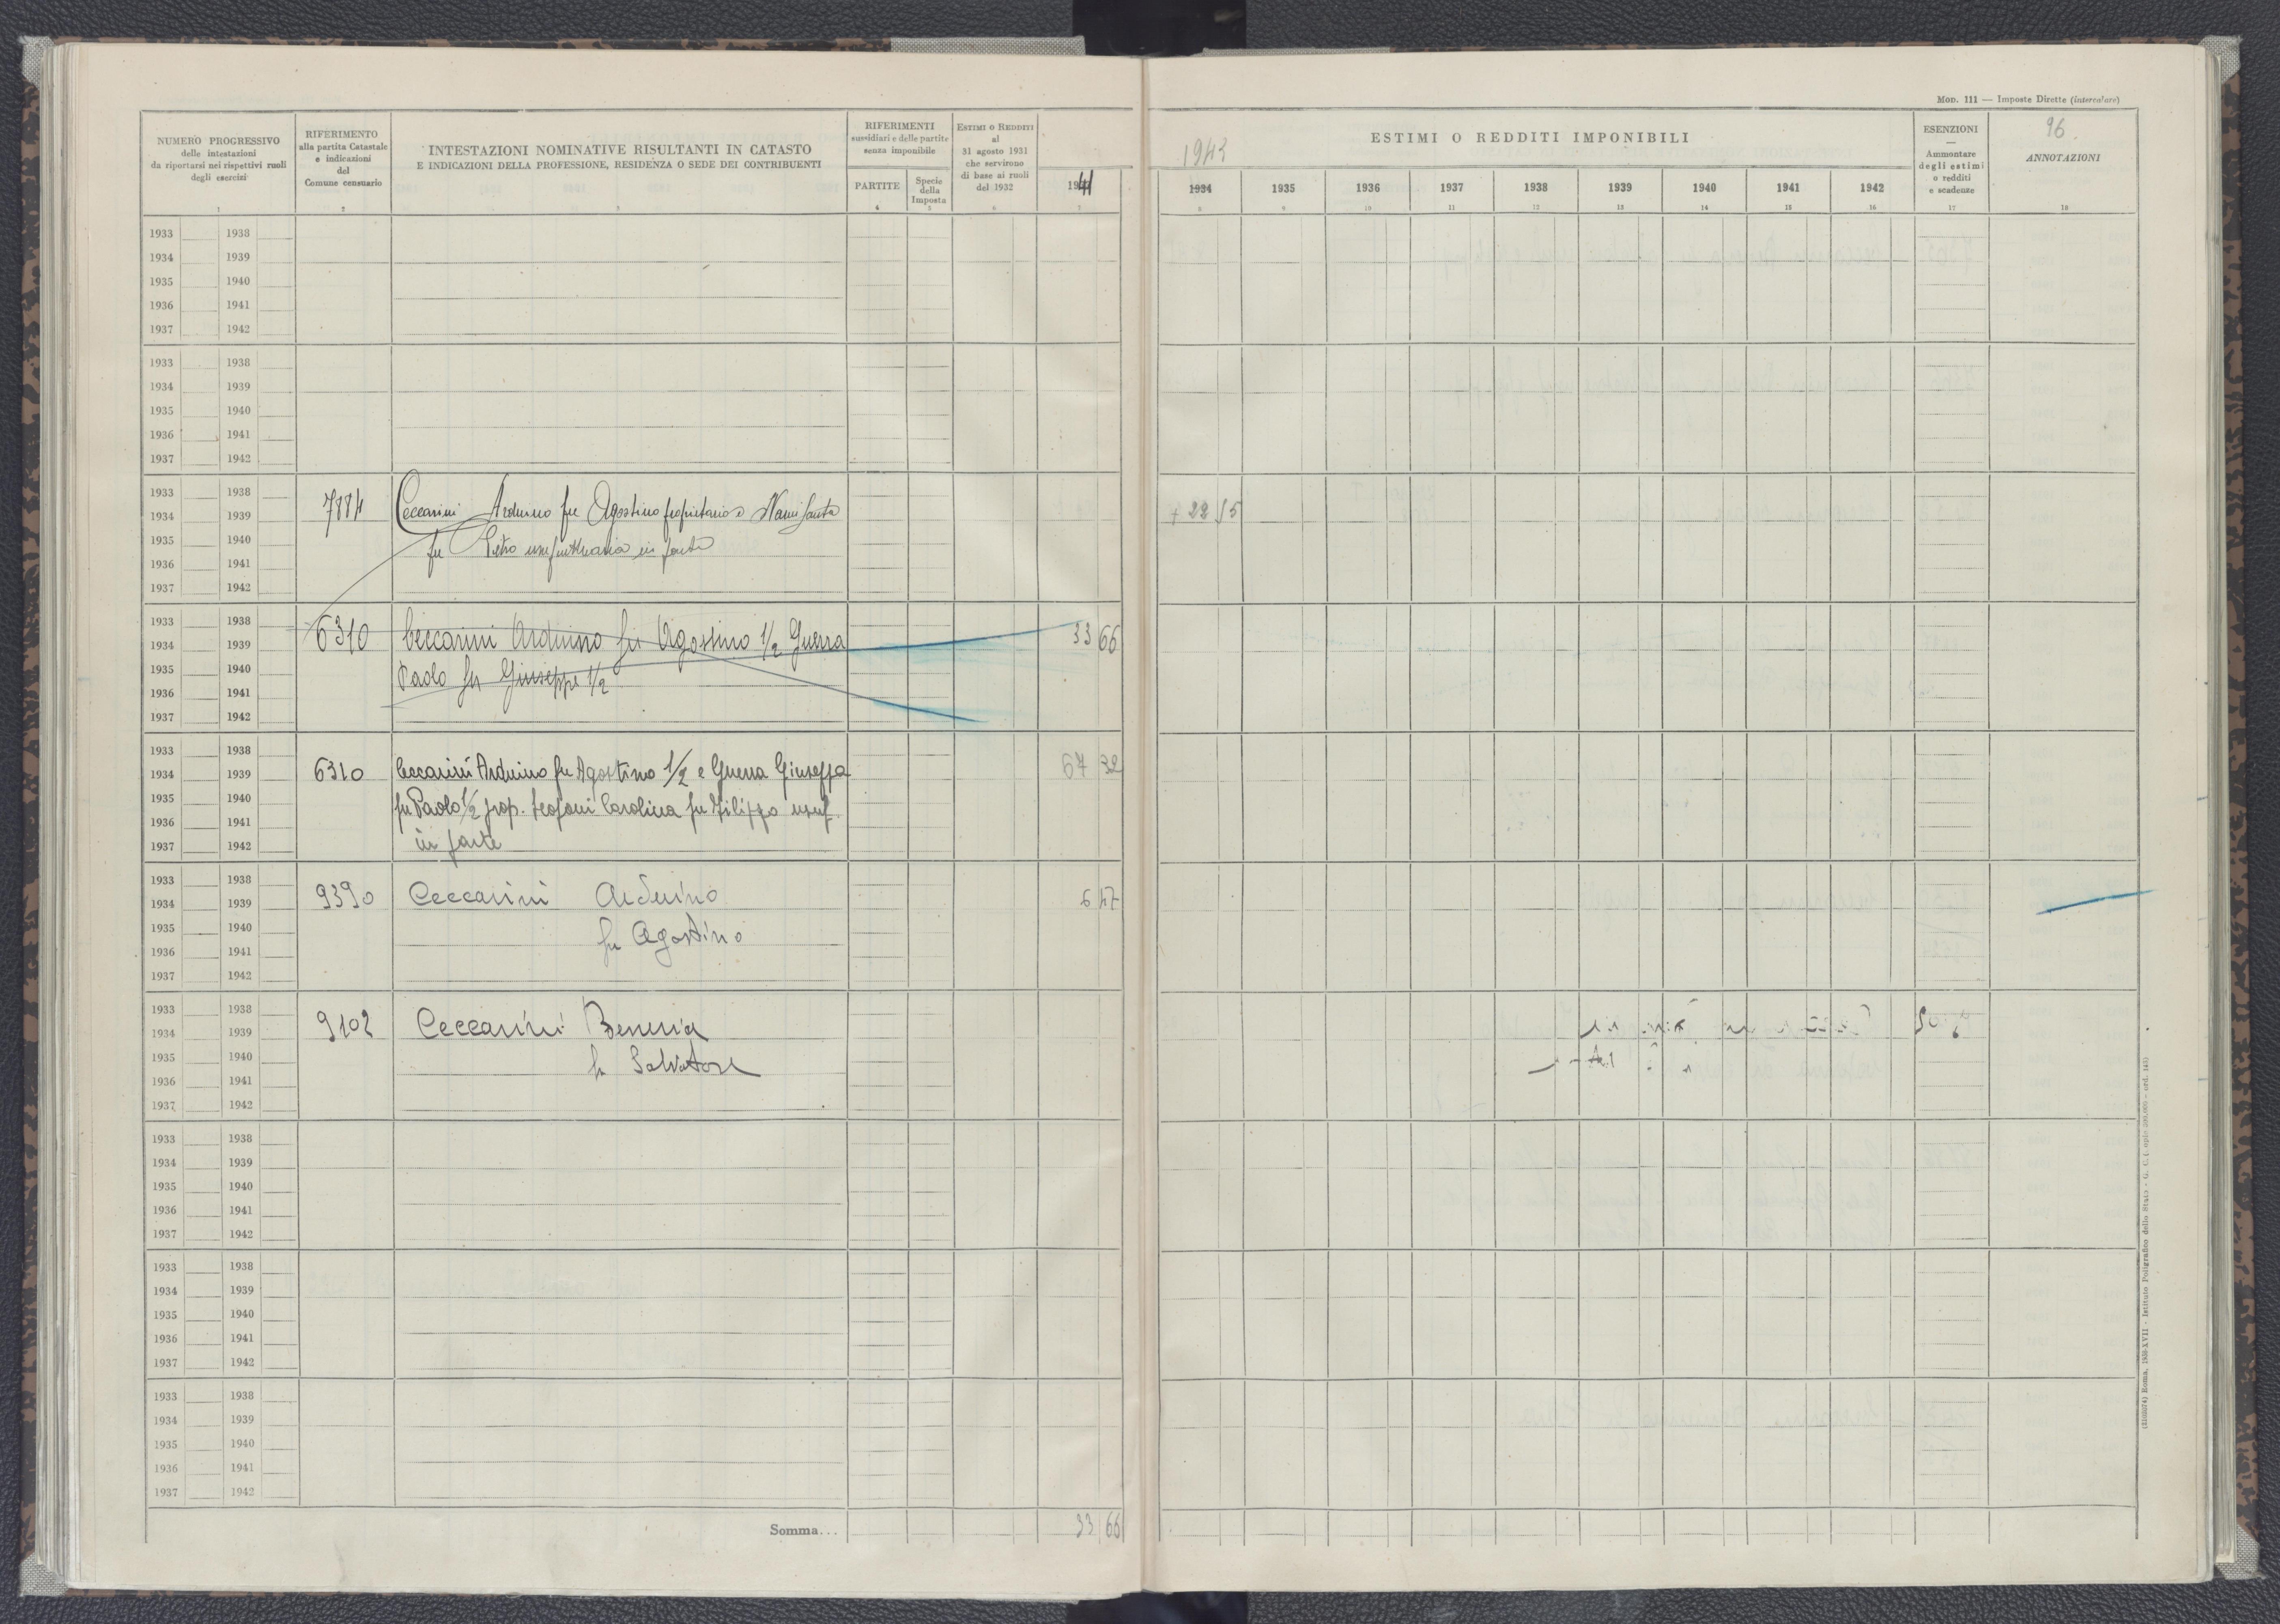 Mod. 111 — Imposte Dirette (intercalare)
NUMERO PROGRESSIVO
delle intestazioni
da riportarsi nei rispettivi ruoli
degli esercizi
1
RIFERIMENTO
alla partita Catastale
e indicazioni
del
Comune censuario
2
INTESTAZIONI NOMINATIVE RISULTANTI IN CATASTO
E INDICAZIONI DELLA PROFESSIONE, RESIDENZA O SEDE DEI CONTRIBUENTI
3
RIFERIMENTI
sussidiari e delle partite
senza imponibile
PARTITE
4
Specie
della
Imposta
5
ESTIMI O REDDITI
al
31 agosto 1931
che servirono
di base ai ruoli
del 1932
6
1941
7
ESTIMI O REDDITI IMPONIBILI
1943
1934 1935 1936 1937 1938 1939 1940 1941 1942
8 9 10 11 12 13 14 15 16
ESENZIONI
—
Ammontare
degli estimi
o redditi
e scadenze
17
96.
ANNOTAZIONI
18
1933 1938
1934 1939
1935 1940
1936 1941
1937 1942
1933 1938
1934 1939
1935 1940
1936 1941
1937 1942
1933 1938
1934 1939
1935 1940
1936 1941
1937 1942
7884 Ceccarini Arduino fu Agostino proprietario e Nanni Santa
fu Pietro usufruttuaria in parte
1933 1938
1934 1939
1935 1940
1936 1941
1937 1942
6310 Ceccarini Arduino fu Agostino 1/2 Guerra 33 66
Paolo fu Giuseppe 1/2
1933 1938
1934 1939
1935 1940
1936 1941
1937 1942
6310 Ceccarini Arduino fu Agostino 1/2 e Guerra Giuseppa 67 32
fu Paolo 1/2 prop. Carolina fu Filippo usuf.
in parte
1933 1938
1934 1939
1935 1940
1936 1941
1937 1942
9390 Ceccarini Arduino 6 47
fu Agostino
1933 1938
1934 1939
1935 1940
1936 1941
1937 1942
9102 Ceccarini
fu Salvatore
1933 1938
1934 1939
1935 1940
1936 1941
1937 1942
1933 1938
1934 1939
1935 1940
1936 1941
1937 1942
1933 1938
1934 1939
1935 1940
1936 1941
1937 1942
Somma... 33 66